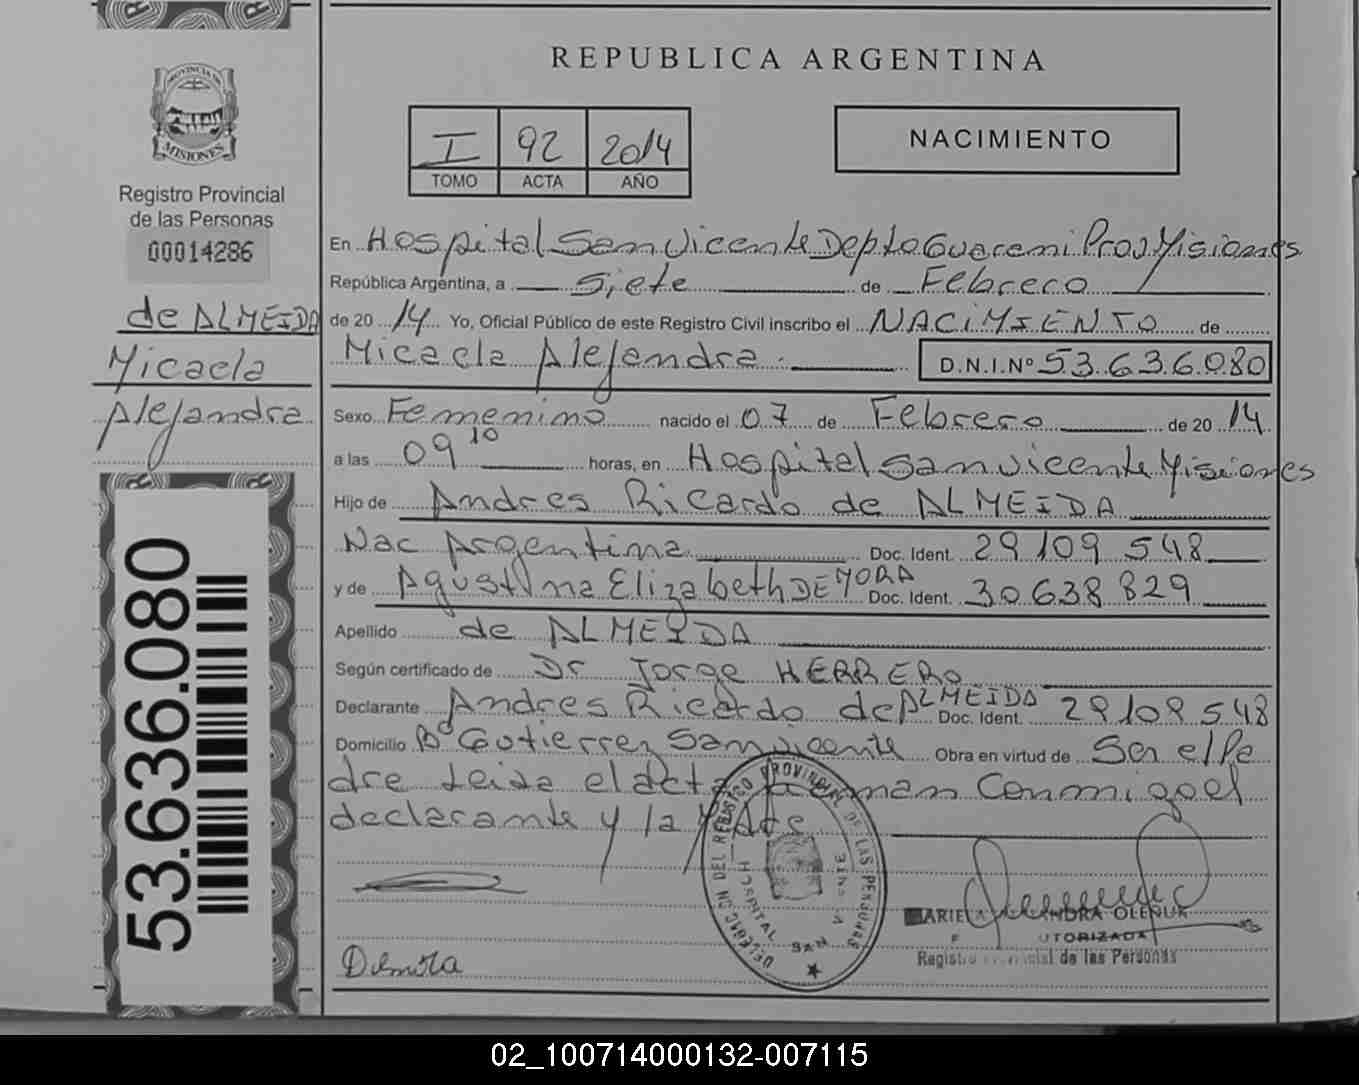 REPUBLICA ARGENTINA
PROVINCIA DE
MISIONES
Registro Provincial
de las Personas
00014286
de ALMEIDA
Micaela
Alejandra
53.636.080
I 92 2014
TOMO ACTA AÑO
NACIMIENTO
En Hospital San Vicente Depto Guarani Prov Misiones
República Argentina, a Siete de Febrero
de 20 14 Yo, Oficial Público de este Registro Civil inscribo el NACIMIENTO de
Micaela Alejandra D.N.I.Nº 53.636.080
Sexo Femenino nacido el 07 de Febrero de 20 14
a las 09 10 horas, en Hospital San Vicente Misiones
Hijo de Andres Ricardo de ALMEIDA
Nac Argentina Doc. Ident. 29 109 548
y de Agustina Elizabeth DE MORA Doc. Ident. 30 638 829
Apellido de ALMEIDA
Según certificado de Dr Jorge HERRERO
Declarante Andres Ricardo de ALMEIDA Doc. Ident. 29 109 548
Domicilio Bº Gutierrez San Vicente Obra en virtud de Ser el Pa
dre Leida el acta Firman Conmigo el
declarante y la Madre
DELEGACION DEL REGISTRO PROVINCIAL DE LAS PERSONAS
HOSPITAL SAN
ALEJANDRA OLENUK
AUTORIZADA
Registro Provincial de las Personas
02_100714000132-007115